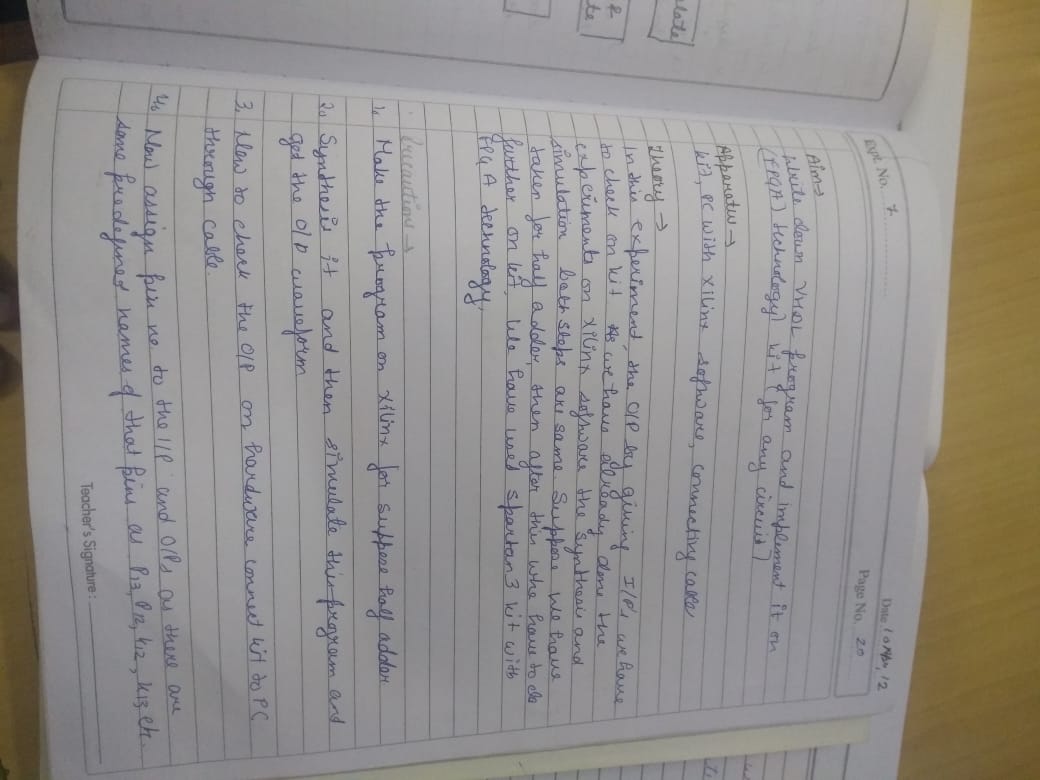 Expt. No. 7
Date 10 Apr, 12
Page No. 20
Aim →
Write down VHDL program and implement it on
(FPGA) technology) kit (for any circuit)
Apparatus →
kit, PC with xilinx software, connecting cable
Theory →
In this experiment, the O/P by giving I/P's, we have
to check on kit As we have already done the
experiments on xilinx software the synthesis and
simulation both steps are same. Suppose we have
taken for half adder, then after this whe have to do
further on kit, we have used spartan 3 kit with
FPGA technology,
Precaution →
1. Make the program on xilinx for suppose half adder
2. Synthesis it and then simulate this program and
get the O/P waveform
3. Now to check the O/P on hardware connect kit to PC
through cable.
4. Now assign pin no to the I/P and O/Ps as there are
some predefined names of that pins as P13, P12, K12, K13, etc.
Teacher's Signature :